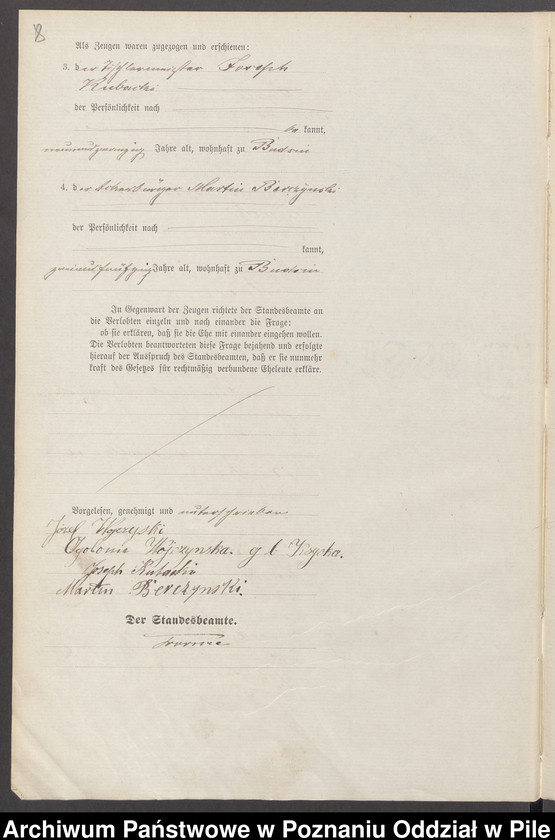 8
Als Zeugen waren zugezogen und erschienen:
3. der Tischlermeister Joseph
Kubacki
der Persönlichkeit nach
kannt,
neunundzwanzig Jahre alt, wohnhaft zu Budsin
4. der Ackerbürger Martin Berczynski
der Persönlichkeit nach
kannt,
zweiundfünfzig Jahre alt, wohnhaft zu Budsin
In Gegenwart der Zeugen richtete der Standesbeamte an
die Verlobten einzeln und nach einander die Frage:
ob sie erklären, daß sie die Ehe mit einander eingehen wollen.
Die Verlobten beantworteten diese Frage bejahend und erfolgte
hierauf der Ausspruch des Standesbeamten, daß er sie nunmehr
kraft des Gesetzes für rechtmäßig verbundene Eheleute erkläre.
Vorgelesen, genehmigt und unterschrieben
Józef
Wójczynska.
Joseph Kubacki
Martin Berczynski.
Der Standesbeamte.
Archiwum Państwowe w Poznaniu Oddział w Pile